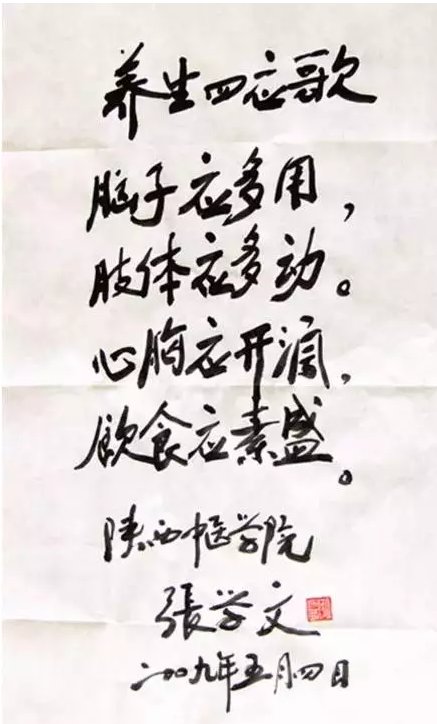 养生四应歌
脑子应多用，
肢体应多动。
心胸应开阔，
飲食应素盛。
陕西中医学院
張学文
二〇〇九年五月四日